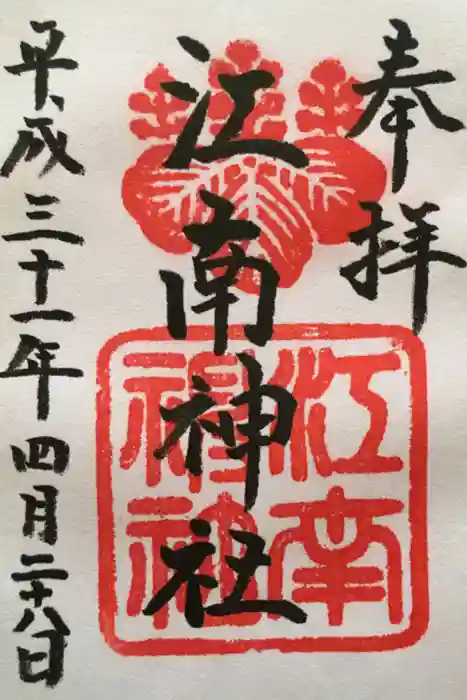 奉拝
江南神社
江南神社
平成三十一年四月二十八日